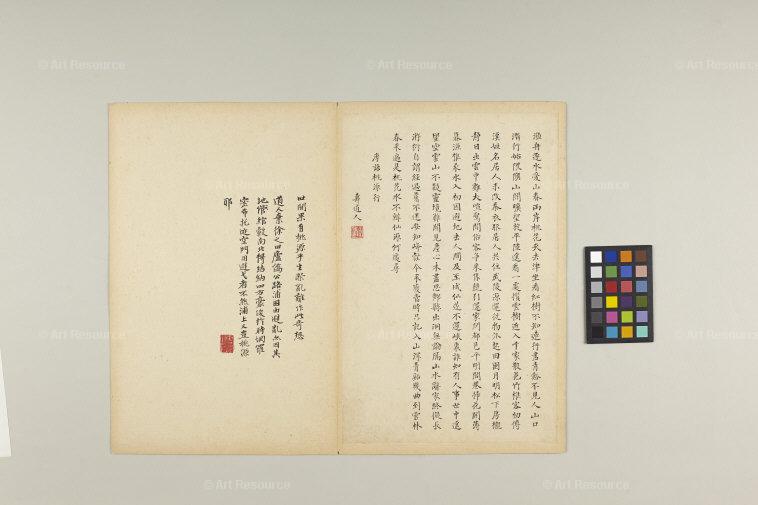 漁舟逐水愛山春兩岸桃花夾去津坐看紅樹不知遠行盡青谿不見人山口
潛行始隈隩山開曠望旋平陸遙看一處攢雲樹近入千家散花竹樵客初傳
漢姓名居人未改秦衣服居人共住武陵源還從物外起田園月明松下房櫳
靜日出雲中雞犬喧驚聞俗客爭來集競引還家問都邑平明閭巷掃花開薄
暮漁樵乘水入初因避地去人間及至成仙遂不還峽裏誰知有人事世中遙
望空雲山不疑靈境難聞見塵心未盡思鄉縣出洞無論隔山水辭家終擬長
游衍自謂經過舊不迷安知峰壑今來變當時只記入山深青谿幾曲到雲林
春來遍是桃花水不辨仙源何處尋
唐詩桃源行
壽道人
世間果有桃源乎生際亂離作此奇想
道人 公路浦 避亂 因其
地 南北 結納四方豪俊 時網羅
空門 者不然浦上又豈桃源
耶
© Art Resource
© Art Resource
© Art Resource
© Art Resource
© Art Resource
© Art Resource
© Art Resource
© Art Resource
© Art Resource